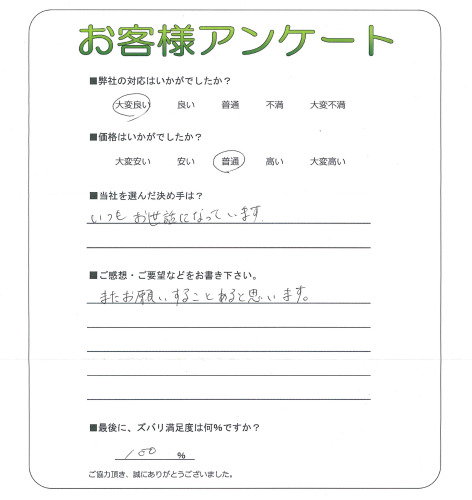 お客様アンケート
■弊社の対応はいかがでしたか？
大変良い 良い 普通 不満 大変不満
■価格はいかがでしたか？
大変安い 安い 普通 高い 大変高い
■当社を選んだ決め手は？
いつもお世話になっています。
■ご感想・ご要望などをお書き下さい。
またお願いすることあると思います。
■最後に、ズバリ満足度は何%ですか？
100 %
ご協力頂き、誠にありがとうございました。